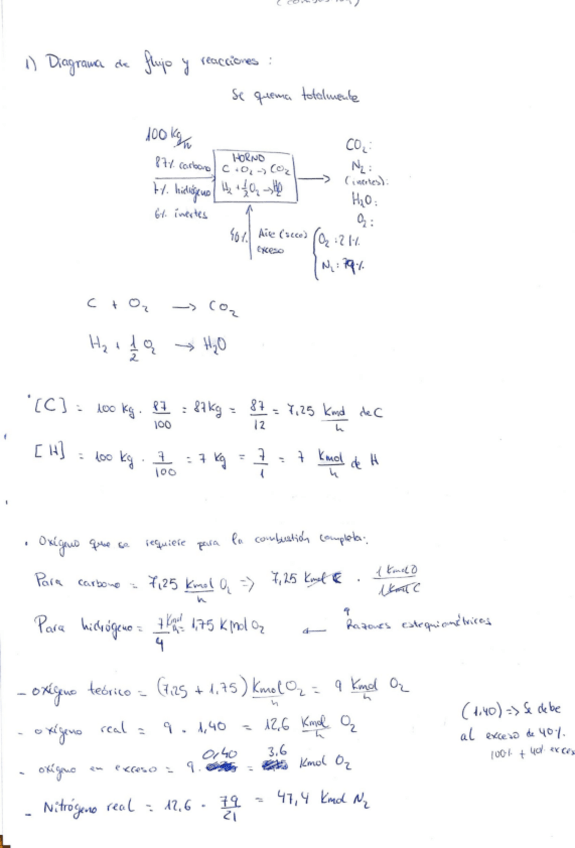 1) Diagrama de flujo y reacciones :
Se quema totalmente
100 Kg/h
87% carbono
7% hidrógeno
6% inertes
HORNO
C + O₂ → CO₂
H₂ + 1/2 O₂ → H₂O
CO₂ :
N₂ :
(inertes):
H₂O :
O₂ :
40% Aire (seco) exceso
O₂ : 21%
N₂ : 79%
C + O₂ → CO₂
H₂ + 1/2 O₂ → H₂O
[C] = 100 Kg · 87/100 = 87 Kg = 87/12 = 7,25 Kmol/h de C
[H] = 100 Kg · 7/100 = 7 Kg = 7/1 = 7 Kmol/h de H
· Oxígeno que se requiere para la combustión completa:
Para carbono = 7,25 Kmol/h O₂ => 7,25 Kmol C · 1 Kmol O / 1 Kmol C
Para hidrógeno = 7/4 Kmol/h = 1,75 Kmol O₂ ← Razones estequiométricas
- oxígeno teórico = (7,25 + 1,75) Kmol/h O₂ = 9 Kmol/h O₂
- oxígeno real = 9 · 1,40 = 12,6 Kmol/h O₂
(1,40) => Se debe
al exceso de 40%
100% + 40% exceso
- oxígeno en exceso = 9 · 0,40 = 3.6 Kmol O₂
- Nitrógeno real = 12,6 · 79/21 = 47,4 Kmol N₂